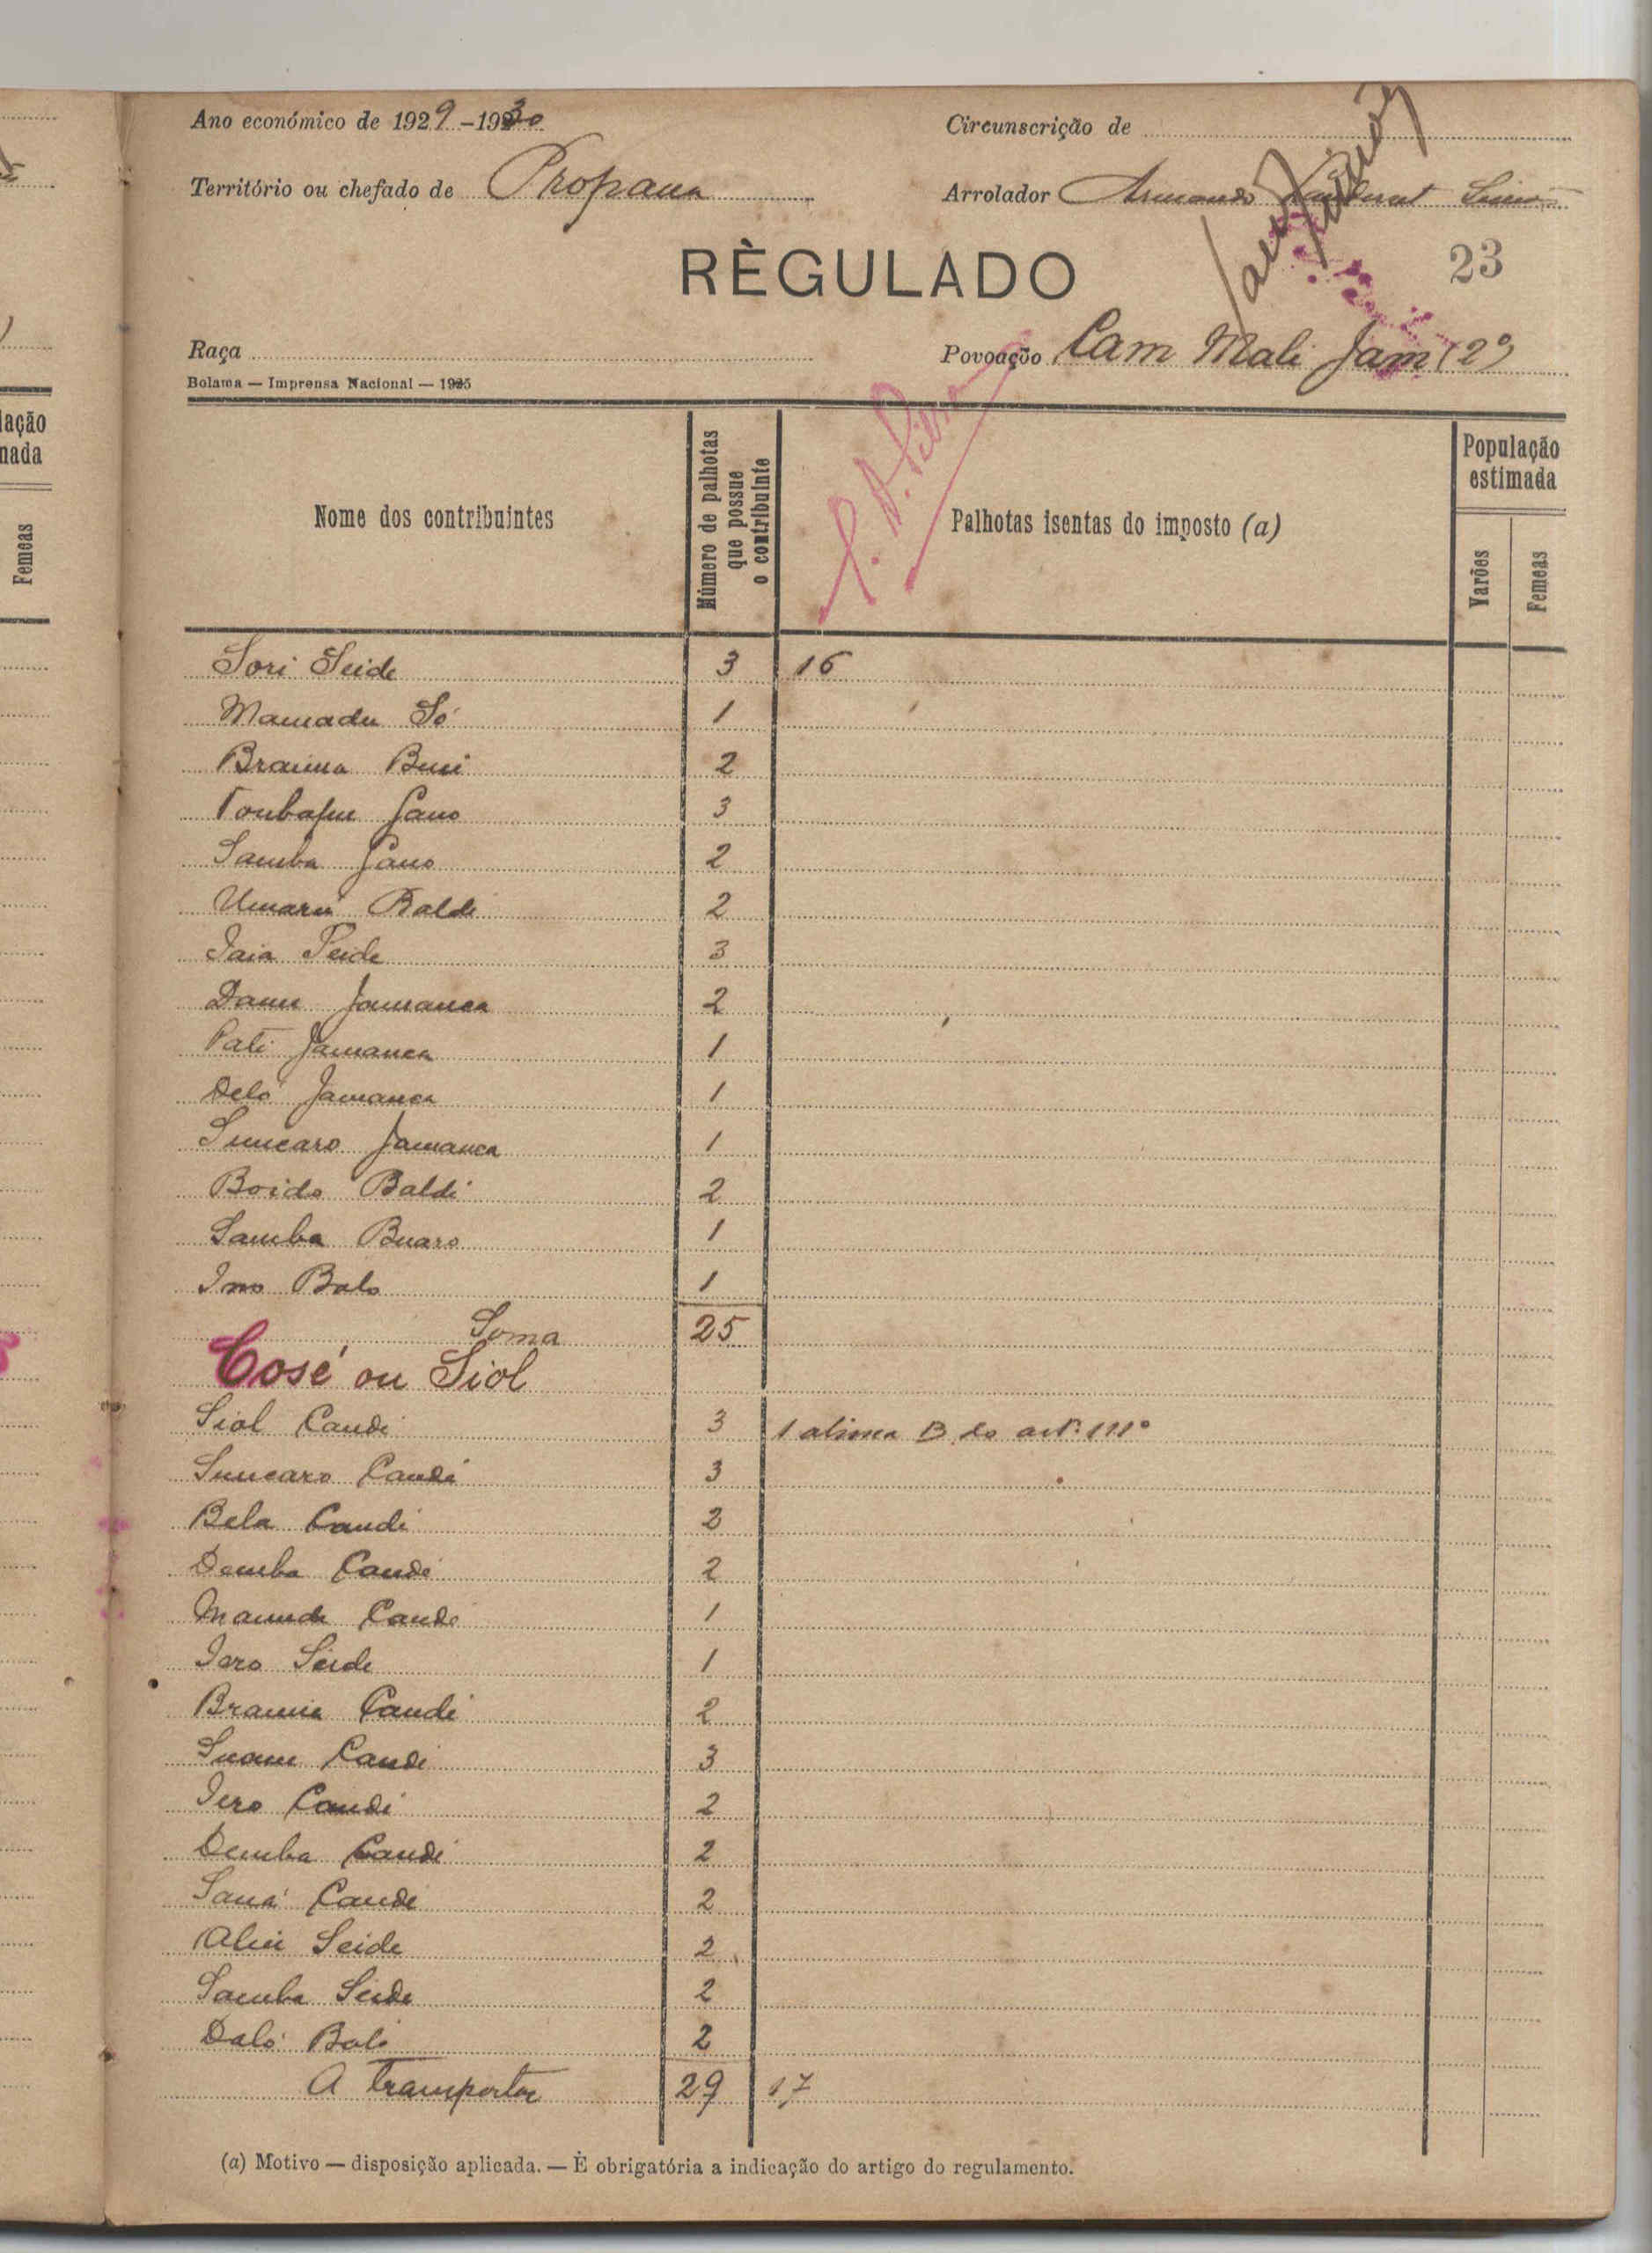 Ano económico de 1929-1930
Circunscrição de
Território ou chefado de Propana
Arrolador Armando
RÈGULADO
23
Raça
Povoação Cam Mali Jam (2º)
Bolama — Imprensa Nacional — 1925
lação
nada
Femeas
Nome dos contribuintes
Número de palhotas que possue o contribuinte
Palhotas isentas do imposto (a)
População estimada
Varões
Femeas
Sori Seide 3 16
Mamadu Só 1
Braima Buri 2
Gano 3
Samba Gano 2
Umarú Baldé 2
Iaia Seide 3
Danu Jamanca 2
Pati Jamanca 1
Deló Jamanca 1
Suncaro Jamanca 1
Boido Baldé 2
Samba Buaro 1
Balo 1
Soma 25
Cosé ou Siol
Siol Candé 3 1 alinea B do artº 111º
Suncaro Candé 3
Bela Candé 2
Demba Candé 2
Candé 1
Iero Seide 1
Braima Candé 2
Candé 3
Iero Candé 2
Demba Candé 2
Saná Candé 2
Aliu Seide 2
Samba Seide 2
Daló Baló 2
A Transportar 29 17
(a) Motivo — disposição aplicada. — È obrigatória a indicação do artigo do regulamento.